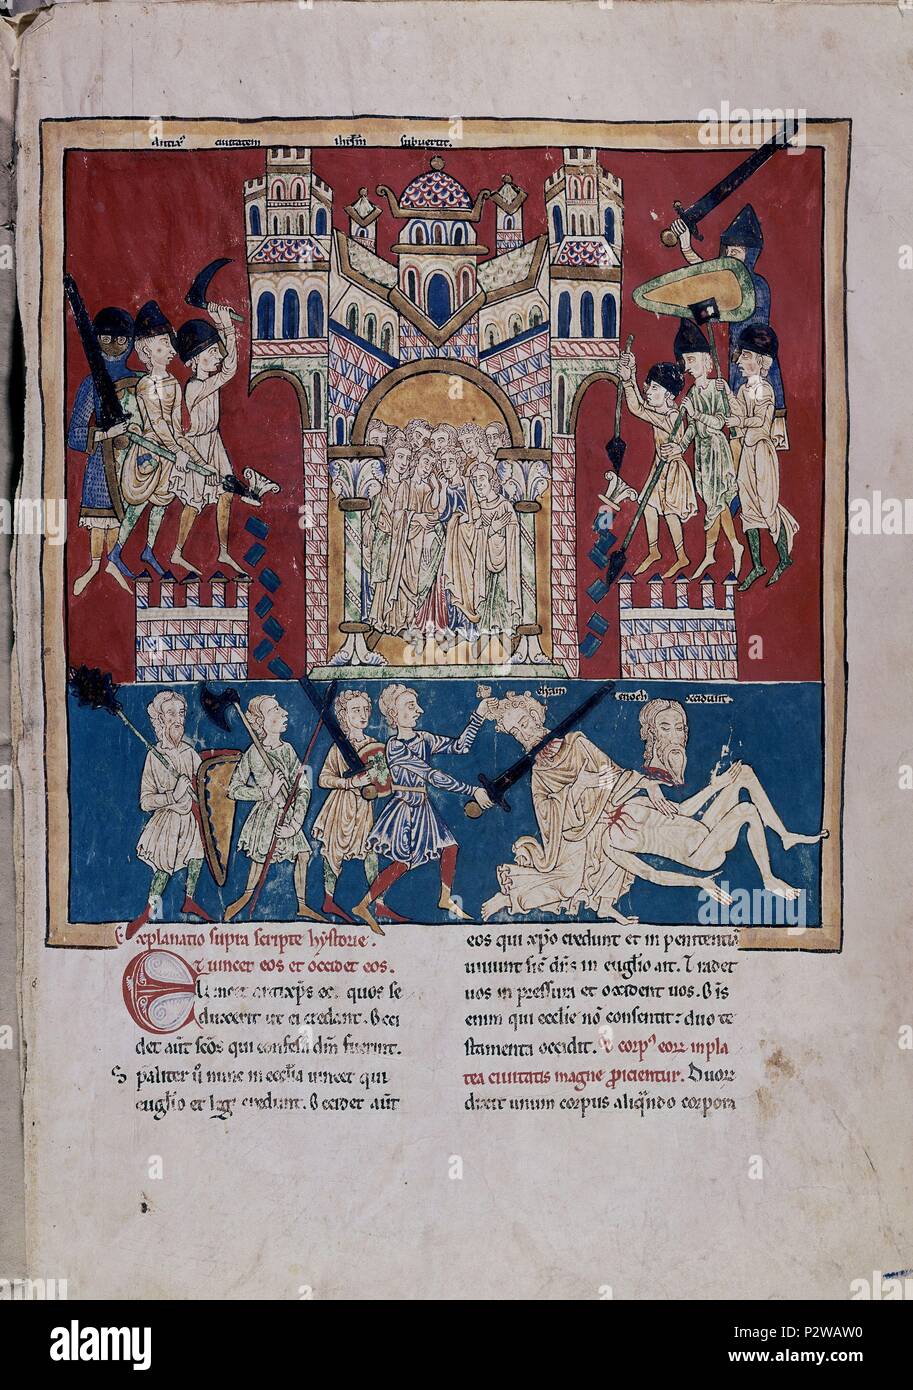 antixps civitatem ihrlm subvertit.
eliam enoch occidunt
Explanatio supra scripte hystorie.
Et vincet eos et occidet eos.
Vincet antixps eos quos se
duxerit ut ei credant. Occi
det aut scos qui confessi dnm fuerint.
Spaliter u nunc in ecclia vincet qui
euglio et legi credunt. Occidet aut
eos qui xpo credunt et in penitentia
vivunt sic dns in euglio ait. Tradet
vos in pressura et occident vos. Ois
enim qui ecclie non consentit: duo te
stamenta occidit. Et corp eor in pla
tea civitatis magne proicientur. Duor
dixit unum corpus aliqndo corpora
alamy
alamy stock photo
P2WAW0
www.alamy.com